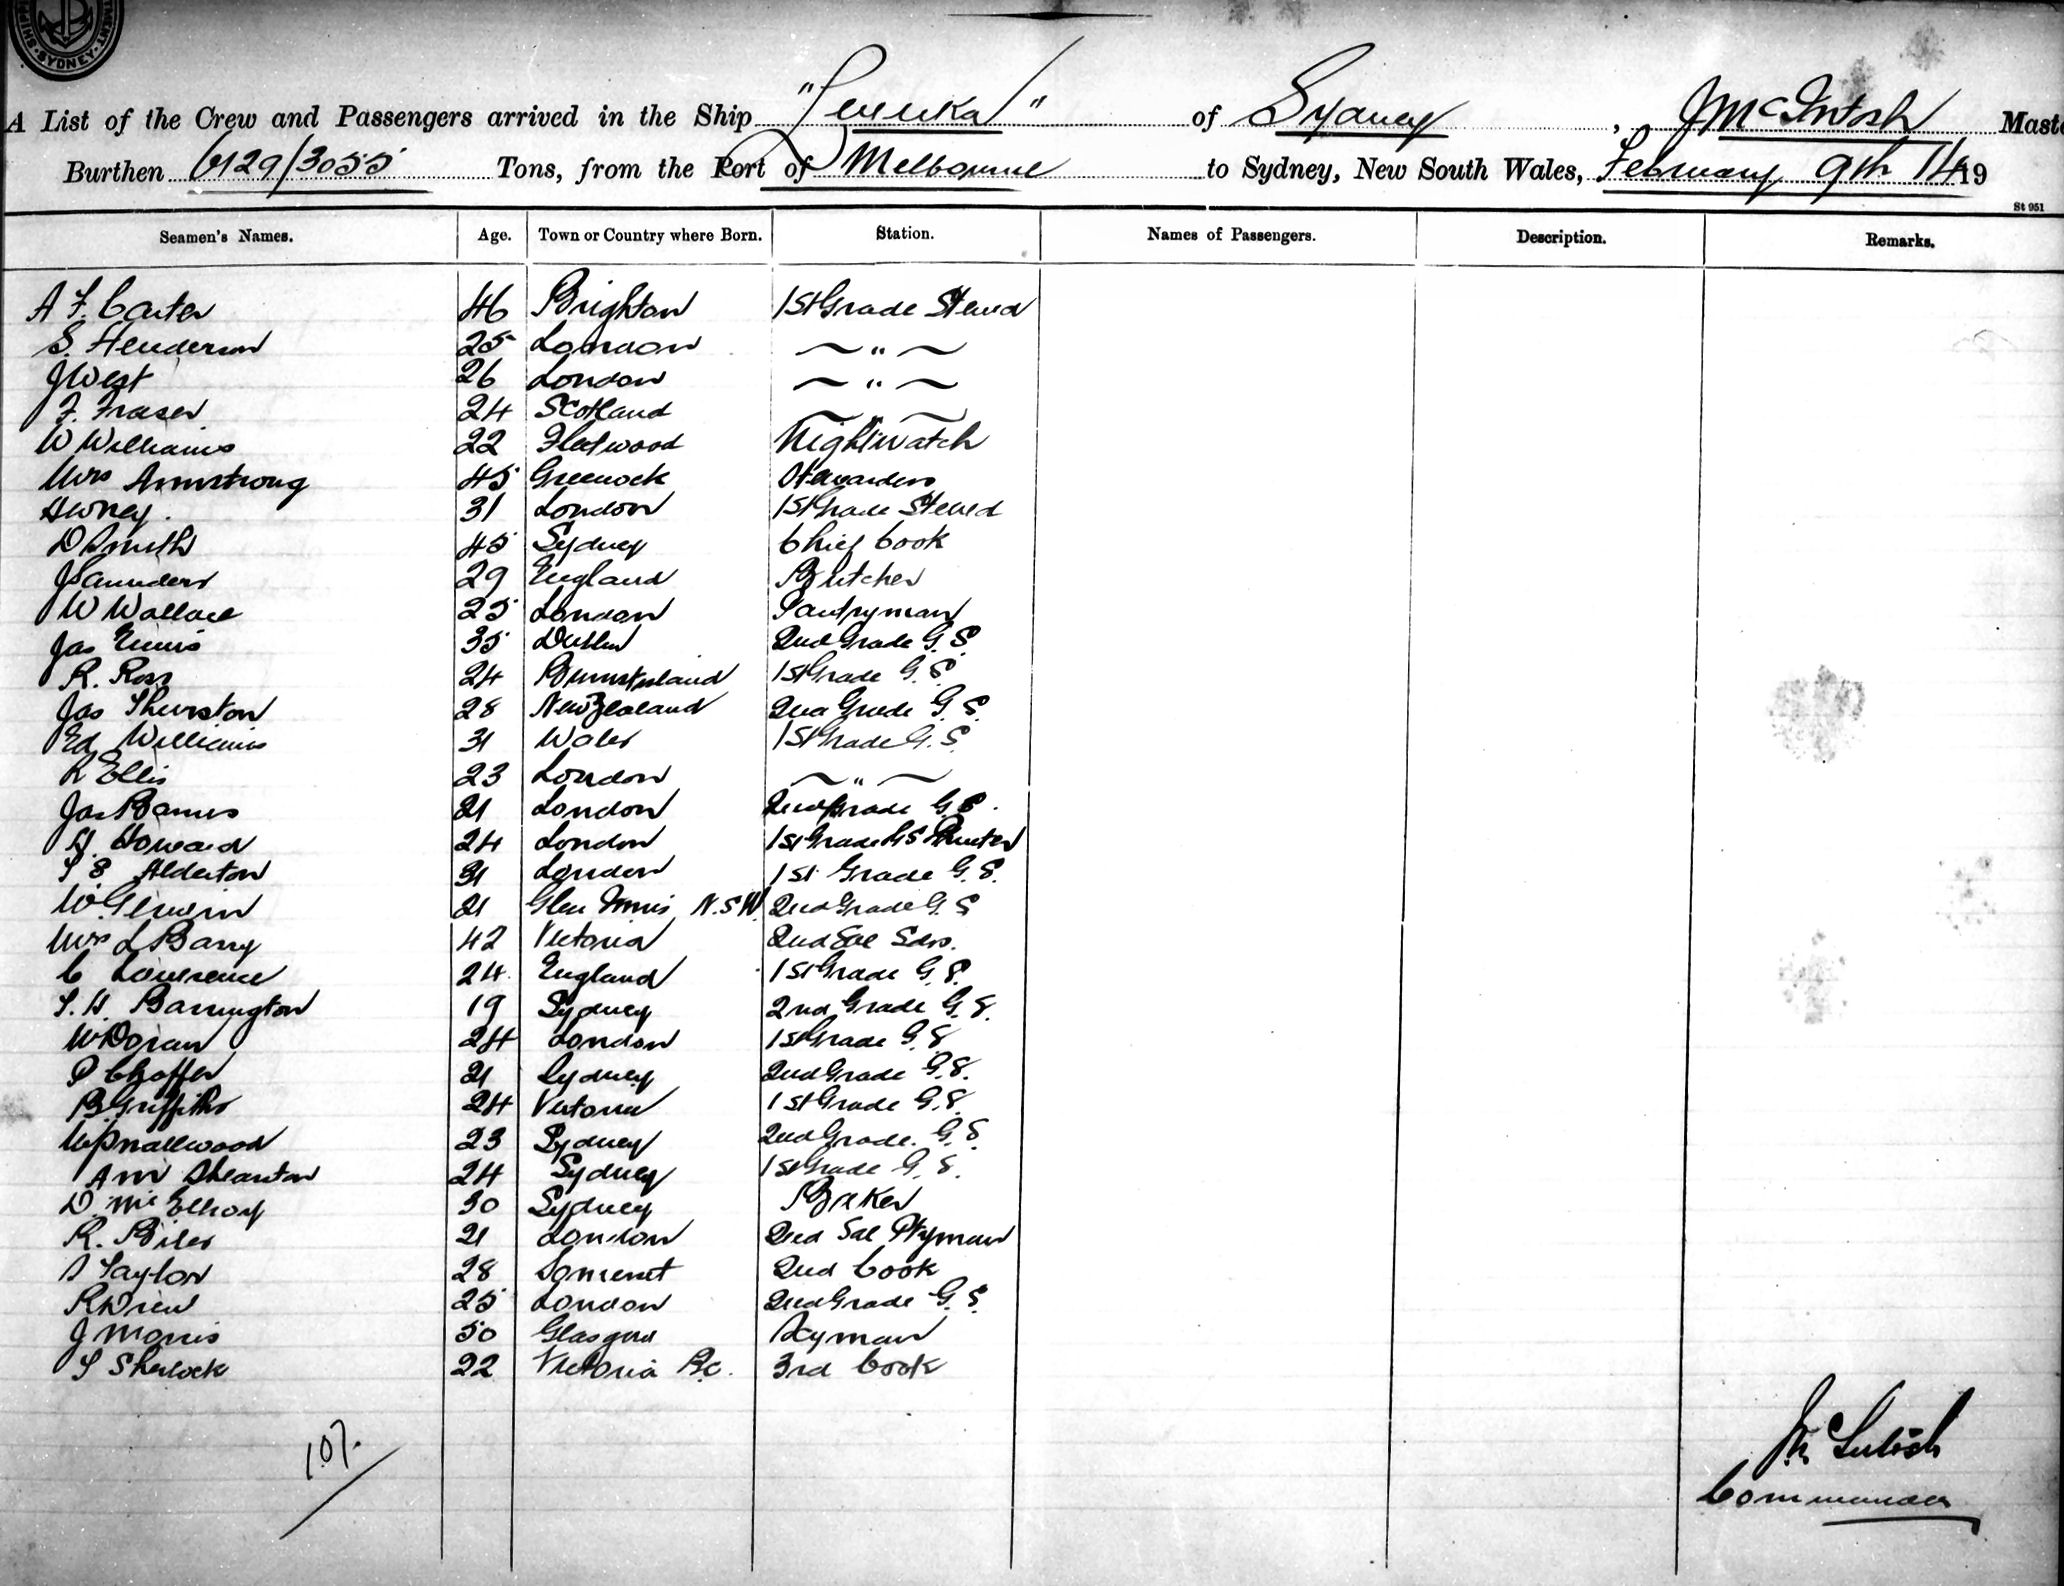 SYDNEY
A List of the Crew and Passengers arrived in the Ship "Levuka" of Sydney, J McIntosh Maste
Burthen 6129/3055 Tons, from the Port of Melbourne to Sydney, New South Wales, February 9th 14 19
St 951
Seamen's Names. Age. Town or Country where Born. Station. Names of Passengers. Description. Remarks.
A F. Carter 46 Brighton 1st Grade Stewd
S. Henderson 25 London 〜 " 〜
J West 26 London 〜 " 〜
F. Fraser 24 Scotland 〜 " 〜
W Williams 22 Fleetwood Nightwatch
Mrs Armstrong 45 Greenock Stewardess
31 London 1st Grade Stewd
D Smith 45 Sydney Chief Cook
J Saunders 29 England Butcher
W Wallace 25 London Pantryman
Jas Ennis 35 Dublin 2nd Grade G. S.
R. Ross 24 1st Grade G. S.
Jas Thurston 28 New Zealand 2nd Grade G. S.
Ed Williams 31 Wales 1st Grade G. S.
R Ellis 23 London 〜 " 〜
Jas Barnes 21 London 2nd Grade G. S.
H. Howard 24 London 1st Grade G S Printer
T E Alderton 31 London 1st Grade G. S.
21 Glen Innis N. S W. 2nd Grade G. S
Mrs L Barry 42 Victoria 2nd Sal Sdss.
C Lawrence 24 England 1st Grade G. S.
T. H. Barrington 19 Sydney 2nd Grade G. S.
W Doran 24 London 1st Grade G. S
P Chaffer 21 Sydney 2nd Grade G. S.
B. Griffiths 24 Victoria 1st Grade G. S.
W Smallwood 23 Sydney 2nd Grade. G. S.
A M Shearston 24 Sydney 1st Grade G. S.
D. McElroy 30 Sydney Baker
R. Biles 21 London 2nd Sal Ptryman
S Taylor 28 Somerset 2nd Cook
R Drew 25 London 2nd Grade G. S.
J Morris 50 Glasgow
T Sherlock 22 Victoria B.C. 3rd Cook
107.
J McIntosh
Commander